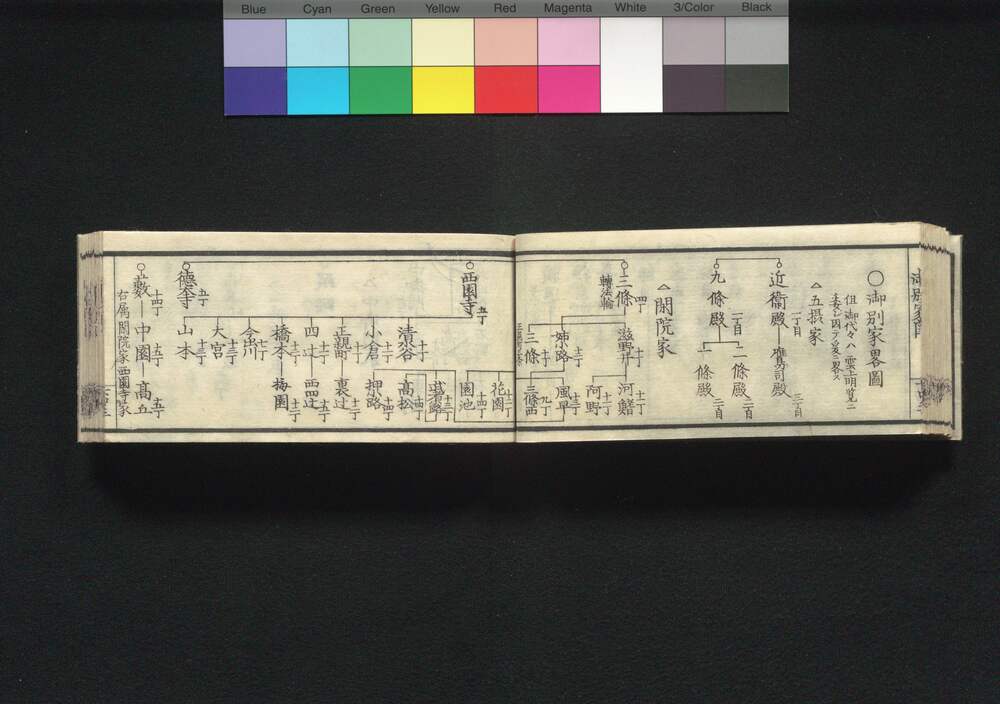 Blue Cyan Green Yellow Red Magenta White 3/Color Black
〇御別家畧圖
但御代々ハ雲上明覧ニ
△五摂家
近衞殿 二丁目 鷹司殿 三丁目
九條殿 二丁目 二條殿 三丁目
一條殿 三丁目
△閑院家
三條 四丁
轉法輪
滋野井 十一丁 河鰭 十二丁
阿野 十二丁
姉小路 十丁 風早 十三丁
三條 十丁 三條西 九丁
花園 十三丁
園池 十四丁
西園寺 五丁
武者小路 十三丁
高松 十四丁
清水谷 十丁
小倉 十丁 押小路 十四丁
正親町 十丁 裏辻 十三丁
四辻 十一丁 西四辻 十五丁
橋本 十一丁 梅園 十五丁
今出川 七丁
大宮 十三丁
山本 十三丁
德大寺 五丁
藪 十四丁 中園 十五丁 髙丘 十五丁
右属閑院家西園寺家